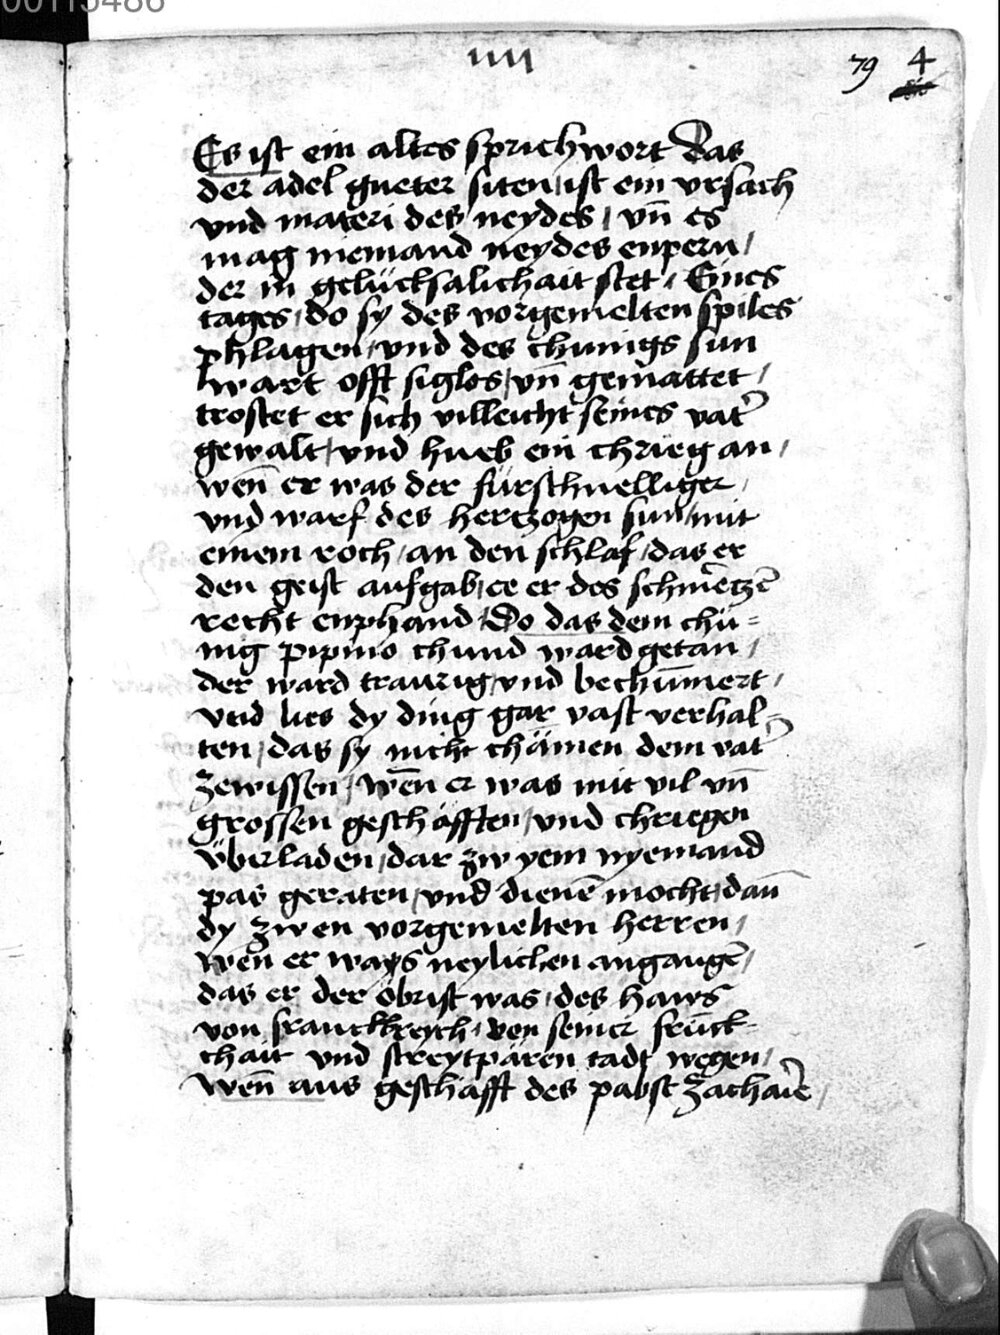 00115486
iiii
79 4
Es ist ein altes sprichwort das
der adel gueter siten / ist ein vrsach
vnd materi des neydes / vn̄ es
mag niemand neydes enpern /
der in gelücksalichait stet / Eines
tages / do sy des vorgemelten spiles
phlagen / vnd des chunigs sun
wart offt siglos / vn̄ gemattet /
trostet er sich villeicht seines vat᷑
gewalt / vnd hueb ein chrieg an /
wen̄ er was der fürschnelliger
vnd warf des hertzogen sun / mit
einem roch / an den schlaf / das er
den geist aufgab / ee er des schmertzē
recht enphand / Do das dem chü=
nig pipino chund ward getan /
der ward traurig / vnd bechūmert /
vnd lies dy ding gar vast verhal=
ten / das sy nicht chämen dem vat᷑
zewissen / wen̄ er was mit vil vn̄
grossen geschäfften / vnd chriegen
überladen / dar zw yem nyemand
pas geraten / vnd dienē mocht / dan̄
dy zwen vorgemelten herren /
wen̄ er ways neylichen angangē /
das er der obrist was / des haws
von franckhreych / von seiner frück=
chait vnd streytpären tadt wegen /
wen̄ aus geschäfft des pabst Zachariē /